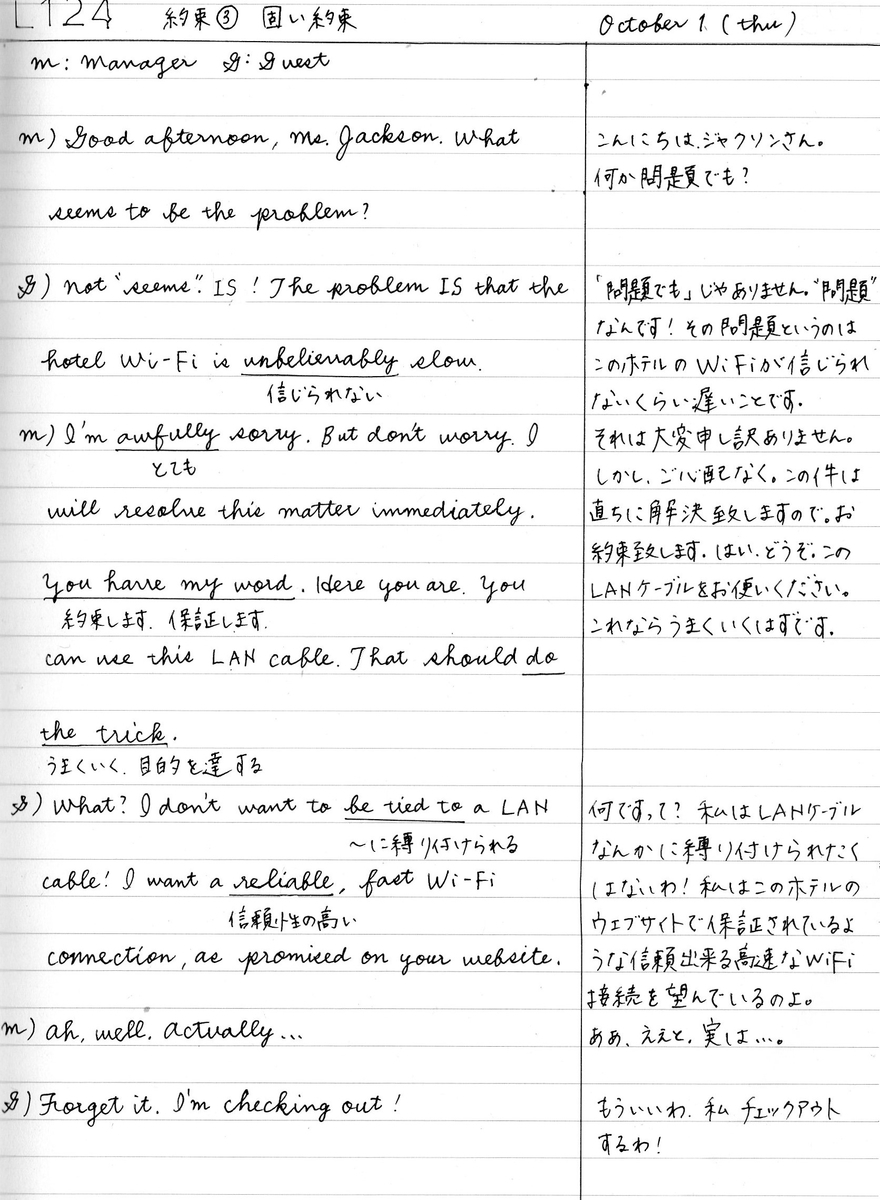 L124 約束③ 固い約束 October 1. (thu)
m: manager G: Guest
m) Good afternoon, Ms. Jackson. What
seems to be the problem?
G) not "seems". IS! The problem IS that the
hotel Wi-Fi is unbelievably slow.
信じられない
m) I'm awfully sorry. But don't worry. I
とても
will resolve this matter immediately.
You have my word. Here you are. You
約束します. 保証します.
can use this LAN cable. That should do
the trick.
うまくいく. 目的を達する
G) What? I don't want to be tied to a LAN
〜に縛り付けられる
cable! I want a reliable, fast Wi-Fi
信頼性の高い
connection, as promised on your website.
m) ah, well. actually...
G) Forget it. I'm checking out!
こんにちは.ジャクソンさん。
何か問題でも?
「問題でも」じゃありません。"問題"
なんです!その問題というのは
このホテルの WiFiが信じられ
ないくらい遅いことです.
それは大変申し訳ありません。
しかし、ご心配なく。この件は
直ちに解決致しますので。お
約束致します.はい.どうぞ.この
LANケーブルをお使いください。
これならうまくいくはずです.
何ですって? 私はLANケーブル
なんかに縛り付けられたく
はないわ!私はこのホテルの
ウェブサイトで保証されているよ
うな信頼出来る高速なWiFi
接続を望んでいるのよ。
ああ、ええと.実は...。
もういいわ.私 チェックアウト
するわ!